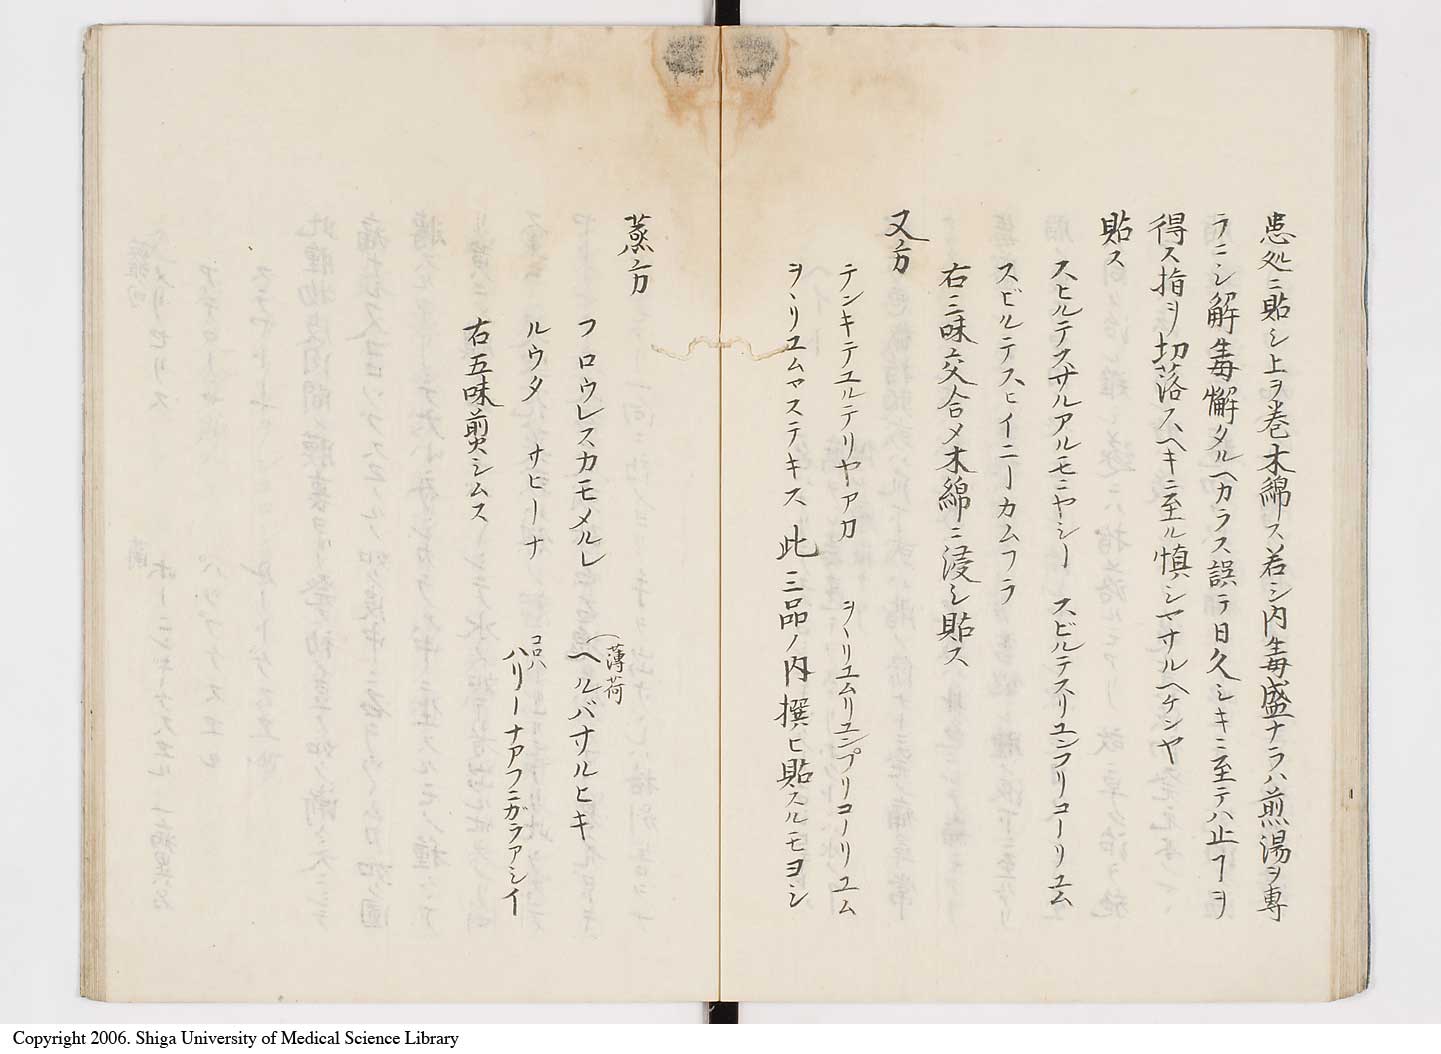 患処ニ貼シ上ヲ巻木綿ス若シ内毒盛ナラハ煎湯ヲ専
ラニシ解毒懈タルヘカラス誤テ日久シキニ至テハ止ヿヲ
得ス指ヲ切落スヘキニ至ル慎シマサルヘケンヤ
貼ス
スヒルテスザルアルモニヤーシー　スビルテスリユンフリコーリユム
スビルテスヒイニーカムフラ
右三味交合メ木綿ニ浸シ貼ス
又方
テンキテユルテリヤアカ　ヲヽリユムリユンプリコーリユム
ヲヽリユムヤステキス　此三品ノ内撰ヒ貼スルモヨシ
蒸方
フロウレスカモメルレ　（薄荷）ヘルバサルヒキ
ルウタ　サヒーナ　コロハ　ハリーナアフニガラアシイ
右五味煎シムス
Copyright 2006. Shiga University of Medical Science Library